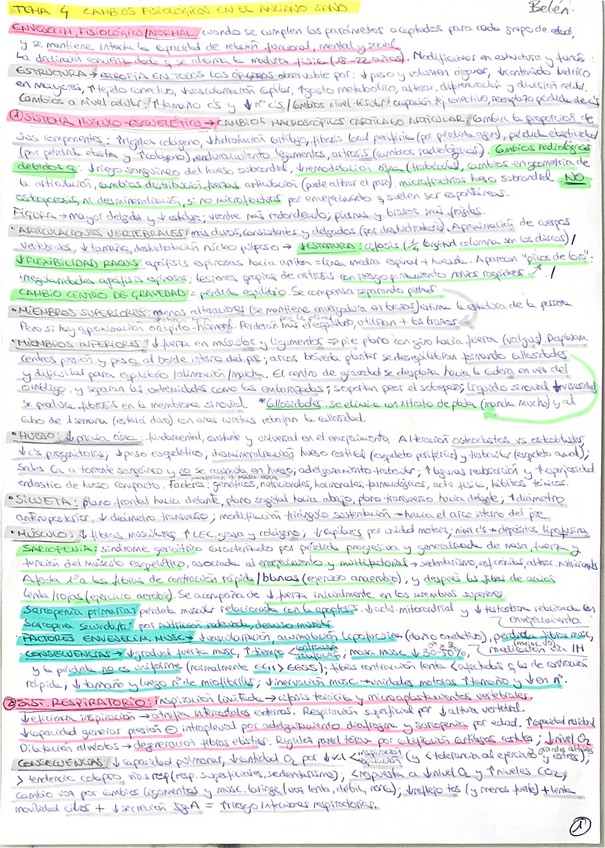 TEMA 4 CAMBIOS FISIOLÓGICOS EN EL ANCIANO SANO Belén.
ENVEJECIM. FISIOLÓGICO/NORMAL: cuando se cumplen los parámetros aceptados para cada grupo de edad,
y se mantiene intacta la capacidad de relación personal, mental y social.
La declinación comienza toda y se alcanza la madurez física (18-22 años). Modificaciones en estructura y función:
ESTRUCTURA → ATROFIA EN TODOS LOS ÓRGANOS observable por: ↓ peso y volumen órganos, ↓ contenido hídrico
en mayores, ↑ tejido conectivo, ↓ vascularización capilar, ↑ gasto metabólico, alterac. diferenciación y división celular.
Cambios a nivel celular: ↑ tamaño cs y ↓ nº cs / Cambios nivel tisular: ocupación tej. conectivo, reemplazo pérdida de cs
① SISTEMA MUSCULO-ESQUELÉTICO → CAMBIOS MACROSCÓPICOS CARTÍLAGO ARTICULAR: Cambia la proporción de
sus componentes: ↑ rigidez colágeno, ↓ hidratación cartílago, fibrosis local periférica (por pérdida agua), pérdida elasticidad
(por pérdida elastina y ↑ colágeno), endurecimiento ligamentos, artrosis (cambios radiológicos). Cambios radiológicos
debidos a: ↓ riego sanguíneo del hueso subcondral, ↓ remodelación ósea (trabéculas), cambios en geometría de
la articulación, cambios distribución fuerzas articulación (puede alterar el peso), microfracturas hueso subcondral. NO
osteoporosis, ni desmineralización, si no microfracturas por envejecimiento y suelen ser espontáneas.
FIGURA → mayor delgada y ↓ estatura; vientre más redondeado; piernas y brazos más frágiles.
• ARTICULACIONES VERTEBRALES: más duros, consistentes y delgados (por deshidratación). Aproximación de cuerpos
vertebrales, ↓ tamaño, deshidratación núcleo pulposo → ↓ ESTATURA; cifosis (¼ longitud columna son los discos) /
↓ FLEXIBILIDAD RAQUIS: apófisis espinosas hacia arriba + línea media espinal + hueside. Aparecen "picos de loro":
irregularidades apófisis espinosas; lesiones propias de artrosis con riesgo pinzamiento nervios raquídeos /
CAMBIO CENTRO DE GRAVEDAD = pérdida equilibrio. Se compensa separando piernas
• MIEMBROS SUPERIORES: menos alteraciones (se mantiene envergadura en brazos) estima la estatura de la persona
Pero si hay aproximación occipito-húmero. Perderán más el equilibrio, utilizan + los brazos
• MIEMBROS INFERIORES: ↓ fuerza en músculos y ligamentos → pie plano con giro hacia fuera (valgus). Desplazan
centros presión y peso al borde interno del pie; arcos bóveda plantar se desequilibran formando callosidades
y dificultad para equilibrio/alineación/marcha. El centro de gravedad se desplaza hacia la cadera en vez del
ombligo, y separan las extremidades como las embarazadas; soportan peor el sobrepeso; líquido sinovial ↓ viscosidad
se produce fibrosis en la membrana sinovial. * Callosidades: se elimina con nitrato de plata (mancha mucho) y al
cabo de 1 semana (estará duro) con unas cuchillas retiran la callosidad.
• HUESO: ↓ masa ósea: fundamental, constante y universal en el envejecimiento. Alteración osteoclastos vs osteoblastos,
↓ cs progenitoras, ↓ peso esquelético, desmineralización hueso cortical (esqueleto periférico) y trabecular (esqueleto axial);
sales Ca a torrente sanguíneo y no se acumula en hueso, adelgazamiento trabecular, ↑ lagunas reabsorción y ↑ superficie
endostio de hueso compacto. Factores: genéticos, nutricionales, hormonales, farmacológicos, activ. física, hábitos tóxicos.
• SILUETA: plano frontal hacia delante, plano sagital hacia abajo, plano transverso hacia delante, ↑ diámetro
anteroposterior, ↓ diámetro transverso; modificación triángulo sustentación → hacia el arco interno del pie
• MÚSCULO: ↓ fibras musculares, ↑ LEC, grasa y colágeno, ↓ capilares por unidad motora; nivel cs → depósitos lipofuscina
SARCOPENIA: síndrome geriátrico caracterizado por pérdida progresiva y generalizada de masa, fuerza y
función del músculo esquelético, asociada al envejecimiento y multifactorial → sedentarismo, enf. crónicas, alterac. nutricionales
Afecta 1º a las fibras de contracción rápida/blancas (ejercicio anaerobio), y después las fibras de acción
lenta/rojas (ejercicio aerobio). Se acompaña de ↓ fuerza inicialmente en los miembros superiores.
Sarcopenia primaria: pérdida muscular relacionada con la apoptosis. ↓ activ. mitocondrial y ↓ testosterona relacionada con
Sarcopenia secundaria: por nutrición inadecuada, desuso muscular envejecimiento
FACTORES ENVEJECIM. MUSC → ↓ vascularización, acumulación lipofuscina (daño oxidativo), pérdida fibras musc,
CONSECUENCIAS → ↓ gradual fuerza musc, ↑ tiempo contracción, masa musc ↓ 30-50%,
y la pérdida no es uniforme (normalmente EEII > EESS); fibras contracción lenta < afectadas q las de contracción
rápida, ↓ tamaño y luego nº de miofibrillas; ↓ inervación musc → unidades motoras ↑ tamaño y ↓ en nº.
② SIST. RESPIRATORIO: inspiración limitada → cifosis torácica y microaplastamientos vertebrales.
↓ eficiencia inspiración → atrofia intercostales externos. Respiración superficial por ↓ altura vertebral.
↓ capacidad generar presión ⊖ intrapleural por adelgazamiento diafragma y sarcopenia por edad. ↑ capacidad residual
Dilatación alvéolos → degeneración fibras elásticas. Rigidez pared tórax por calcificación cartílagos costales; ↓ nivel O2
CONSECUENCIAS: ↓ capacidad pulmonar, ↓ cantidad O2 por ↓ vol (y < tolerancia al ejercicio y grandes alturas);
> tendencia colapso vías resp (resp. superficiales, sedentarismo); < respuesta a ↓ nivel O2 y ↑ niveles CO2;
cambio voz por cambios ligamentos y musc. laringe (voz lenta, débil, ronca); ↓ reflejo tos (y menos fuerte) + lenta
movilidad cilios + ↓ secreción IgA = ↑ riesgo infecciones respiratorias.
①